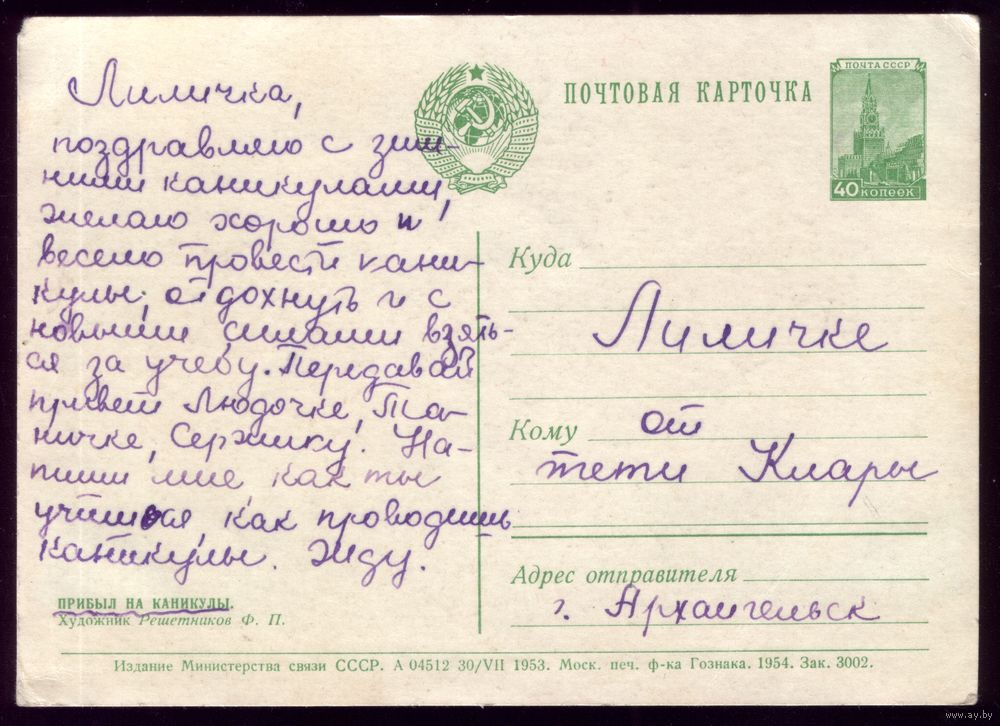 Лиличка,
поздравляю с зим-
ними каникулами,
желаю хорошо и
весело провести кани-
кулы, отдохнуть и с
новыми силами взять-
ся за учебу. Передавай
привет Людочке, Та-
ничке, Сержику. На-
пиши мне как ты
учишься, как проводишь
каникулы. Жду.
ПРИБЫЛ НА КАНИКУЛЫ.
Художник Решетников Ф. П.
ПОЧТОВАЯ КАРТОЧКА
ПОЧТА СССР
40 КОПЕЕК
Куда
Лиличке
Кому от
тети Клары
Адрес отправителя
г. Архангельск
Издание Министерства связи СССР. А 04512 30/VII 1953. Моск. печ. ф-ка Гознака. 1954. Зак. 3002.
www.ay.by